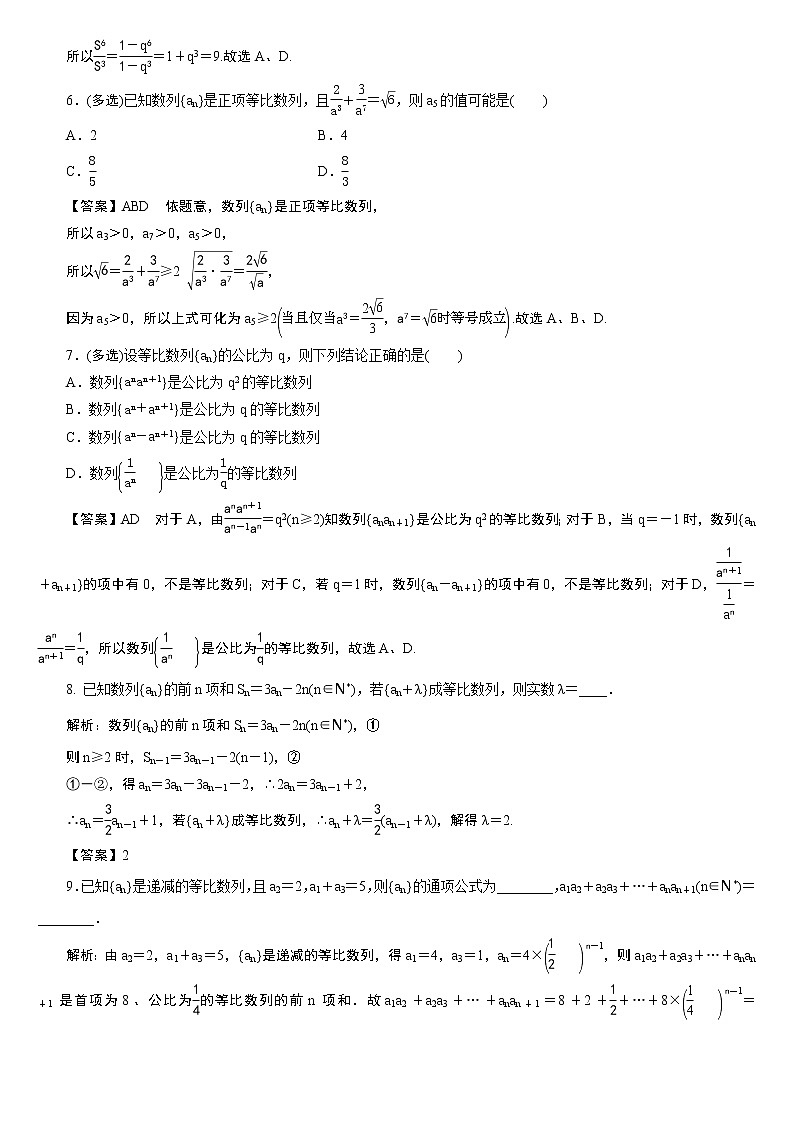 所以S6/S3=1-q6/1-q3=1+q3=9.故选A、D.
6.(多选)已知数列{an}是正项等比数列,且2/a3+3/a7=√6,则a5的值可能是(  )
A.2 B.4
C.8/5 D.8/3
【答案】ABD 依题意,数列{an}是正项等比数列,
所以a3>0,a7>0,a5>0,
所以√6=2/a3+3/a7≥2 √(2/a3·3/a7)=2√6/√a,
因为a5>0,所以上式可化为a5≥2(当且仅当a3=2√6/3,a7=√6时等号成立).故选A、B、D.
7.(多选)设等比数列{an}的公比为q,则下列结论正确的是(  )
A.数列{anan+1}是公比为q2的等比数列
B.数列{an+an+1}是公比为q的等比数列
C.数列{an-an+1}是公比为q的等比数列
D.数列{1/an }是公比为1/q的等比数列
【答案】AD 对于A,由anan+1/an-1an=q2(n≥2)知数列{anan+1}是公比为q2的等比数列;对于B,当q=-1时,数列{an
+an+1}的项中有0,不是等比数列;对于C,若q=1时,数列{an-an+1}的项中有0,不是等比数列;对于D,1/an+1/1/an=
an/an+1=1/q,所以数列{1/an }是公比为1/q的等比数列,故选A、D.
8. 已知数列{an}的前n项和Sn=3an-2n(n∈N*),若{an+λ}成等比数列,则实数λ=____.
解析:数列{an}的前n项和Sn=3an-2n(n∈N*),①
则n≥2时,Sn-1=3an-1-2(n-1),②
①-②,得an=3an-3an-1-2,∴2an=3an-1+2,
∴an=3/2an-1+1,若{an+λ}成等比数列,∴an+λ=3/2(an-1+λ),解得λ=2.
【答案】2
9.已知{an}是递减的等比数列,且a2=2,a1+a3=5,则{an}的通项公式为________,a1a2+a2a3+…+anan+1(n∈N*)=
________.
解析:由a2=2,a1+a3=5,{an}是递减的等比数列,得a1=4,a3=1,an=4×(1/2 )n-1,则a1a2+a2a3+…+anan
+1是首项为8、公比为1/4的等比数列的前n项和.故a1a2+a2a3+…+anan+1=8+2+1/2+…+8×(1/4 )n-1=